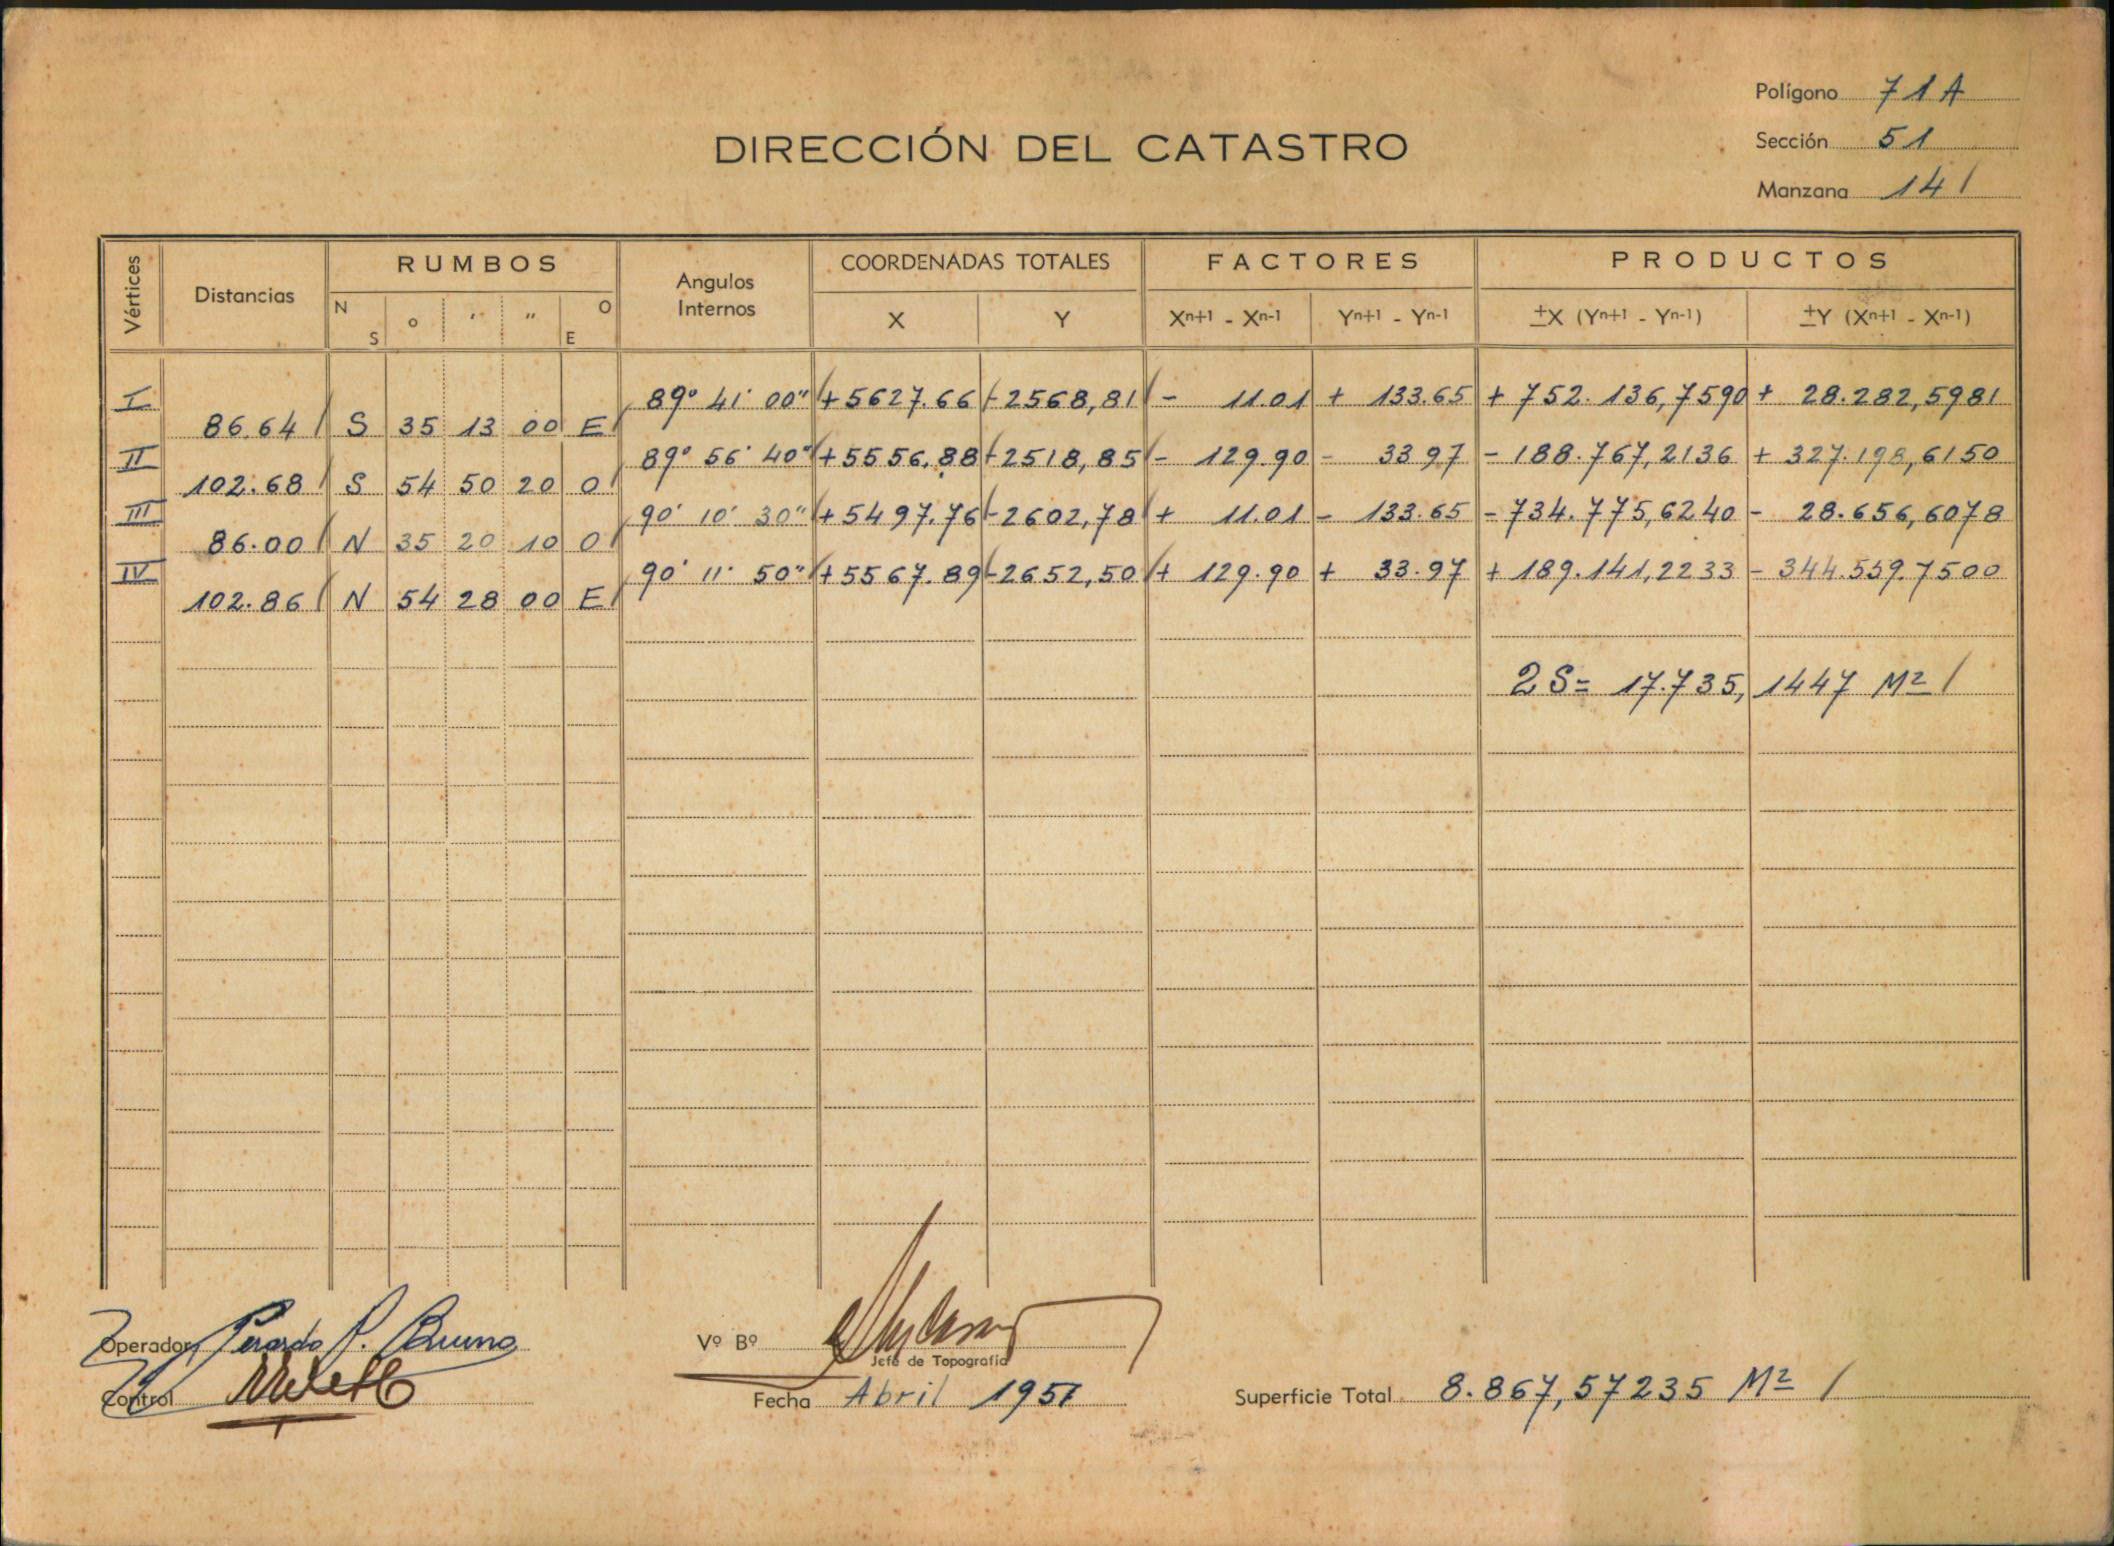 Polígono 71A
DIRECCIÓN DEL CATASTRO
Sección 51
Manzana 14
Vértices Distancias RUMBOS Angulos Internos COORDENADAS TOTALES FACTORES PRODUCTOS
N S o ' " O E X Y Xn+1 - Xn-1 Yn+1 - Yn-1 ±X (Yn+1 - Yn-1) ±Y (Xn+1 - Xn-1)
I 89° 41' 00" +5627.66 -2568,81 - 11.01 + 133.65 + 752.136,7590 + 28.282,5981
86.64 S 35 13 00 E
II 89° 56' 40" +5556,88 -2518,85 - 129.90 - 33.97 - 188.767,2136 + 327.198,6150
102.68 S 54 50 20 O
III 90° 10' 30" +5497.76 -2602,78 + 11.01 - 133.65 -734.775,6240 - 28.656,6078
86.00 N 35 20 10 O
IV 90° 11' 50" +5567.89 -2652,50 + 129.90 + 33.97 + 189.141,2233 - 344.559.7500
102.86 N 54 28 00 E
2S= 17.735,1447 M2
Operador
Vº Bº
Jefe de Topografía
Control
Fecha Abril 1957
Superficie Total 8.867,57235 M2